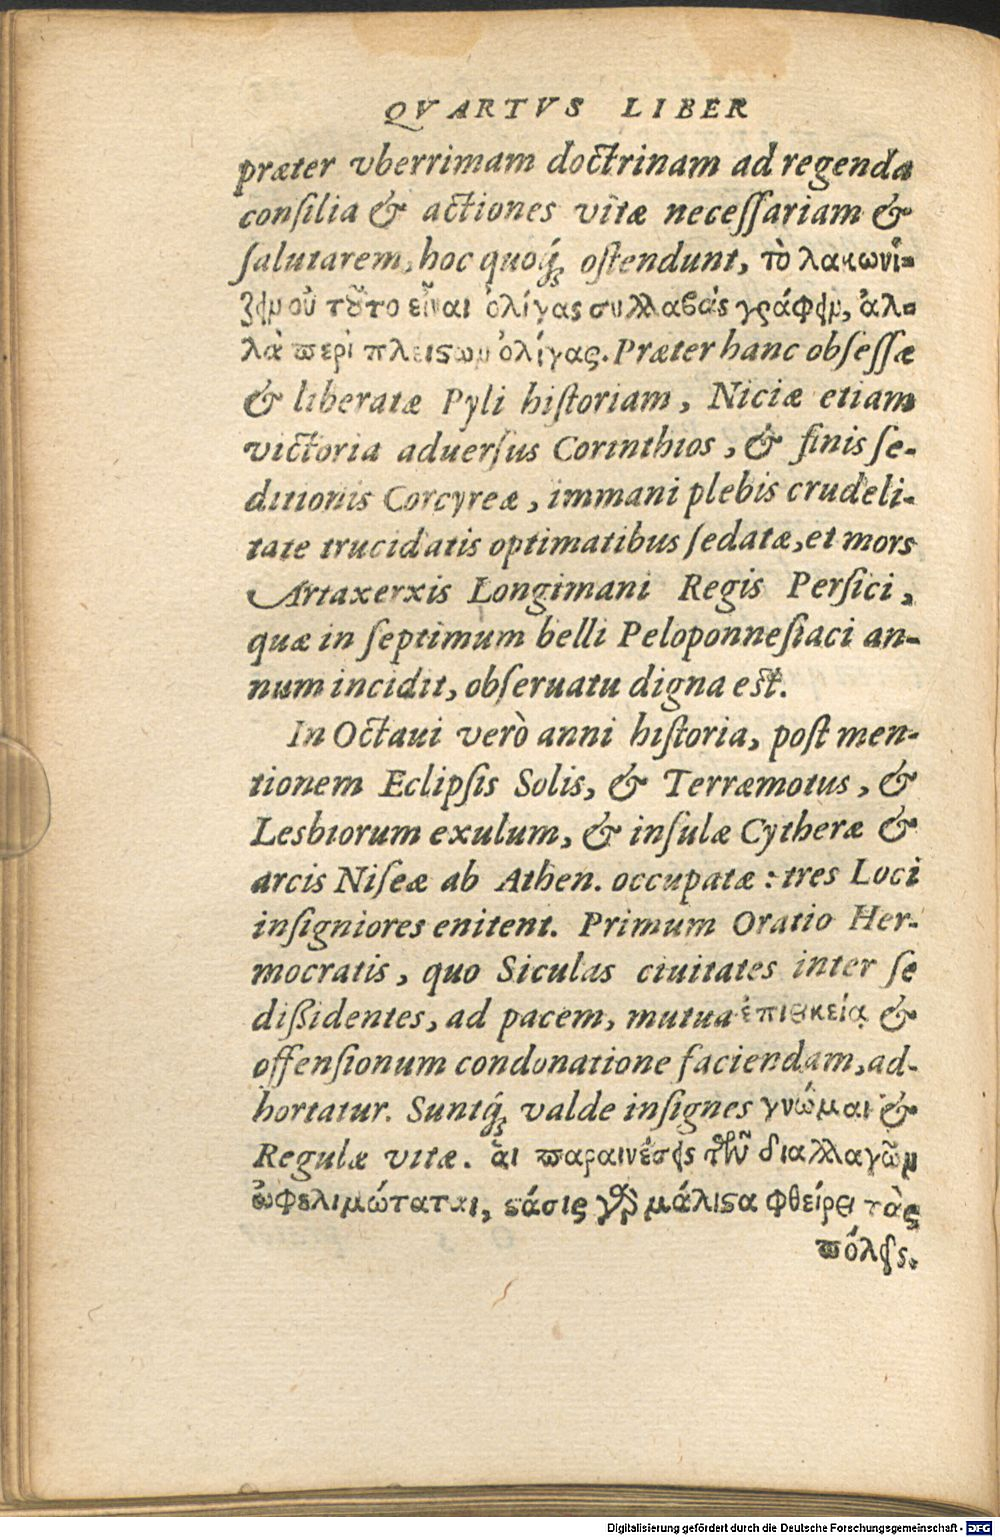 QVARTVS LIBER
præter vberrimam doctrinam ad regenda
consilia & actiones vitæ necessariam &
salutarem, hoc quoq́; ostendunt, τὸ λακωνί-
ζειν οὐ τοῦτο εἶναι ὀλίγας συλλαβὰς γράφειν, ἀλ-
λὰ περὶ πλείςων ὀλίγας. Præter hanc obsessæ
& liberatæ Pyli historiam, Niciæ etiam
victoria aduersus Corinthios, & finis se-
ditionis Corcyreæ, immani plebis crudeli-
tate trucidatis optimatibus sedatæ, et mors
Artaxerxis Longimani Regis Persici,
quæ in septimum belli Peloponnesiaci an-
num incidit, obseruatu digna est.
In Octaui verò anni historia, post men-
tionem Eclipsis Solis, & Terræmotus, &
Lesbiorum exulum, & insulæ Cytheræ &
arcis Niseæ ab Athen. occupatæ: tres Loci
insigniores enitent. Primum Oratio Her-
mocratis, quo Siculas ciuitates inter se
dißidentes, ad pacem, mutua ἐπιεικείᾳ &
offensionum condonatione faciendam, ad-
hortatur. Suntq́; valde insignes γνώμαι &
Regulæ vitæ. ἁι παραινέσεις τῶν διαλλαγῶν
ὠφελιμώταται, ςάσις γὰρ μάλιςα φθείρει τὰς
πόλεις.
Digitalisierung gefördert durch die Deutsche Forschungsgemeinschaft - DFG